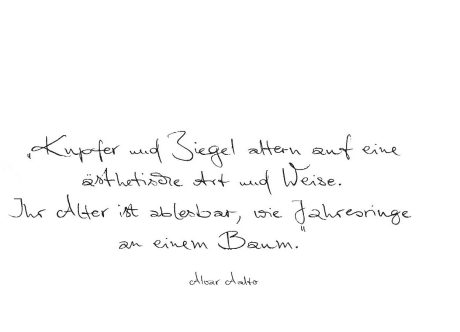 „Kupfer und Ziegel altern auf eine
ästhetische Art und Weise.
Ihr Alter ist ablesbar, wie Jahresringe
an einem Baum."
Alvar Aalto